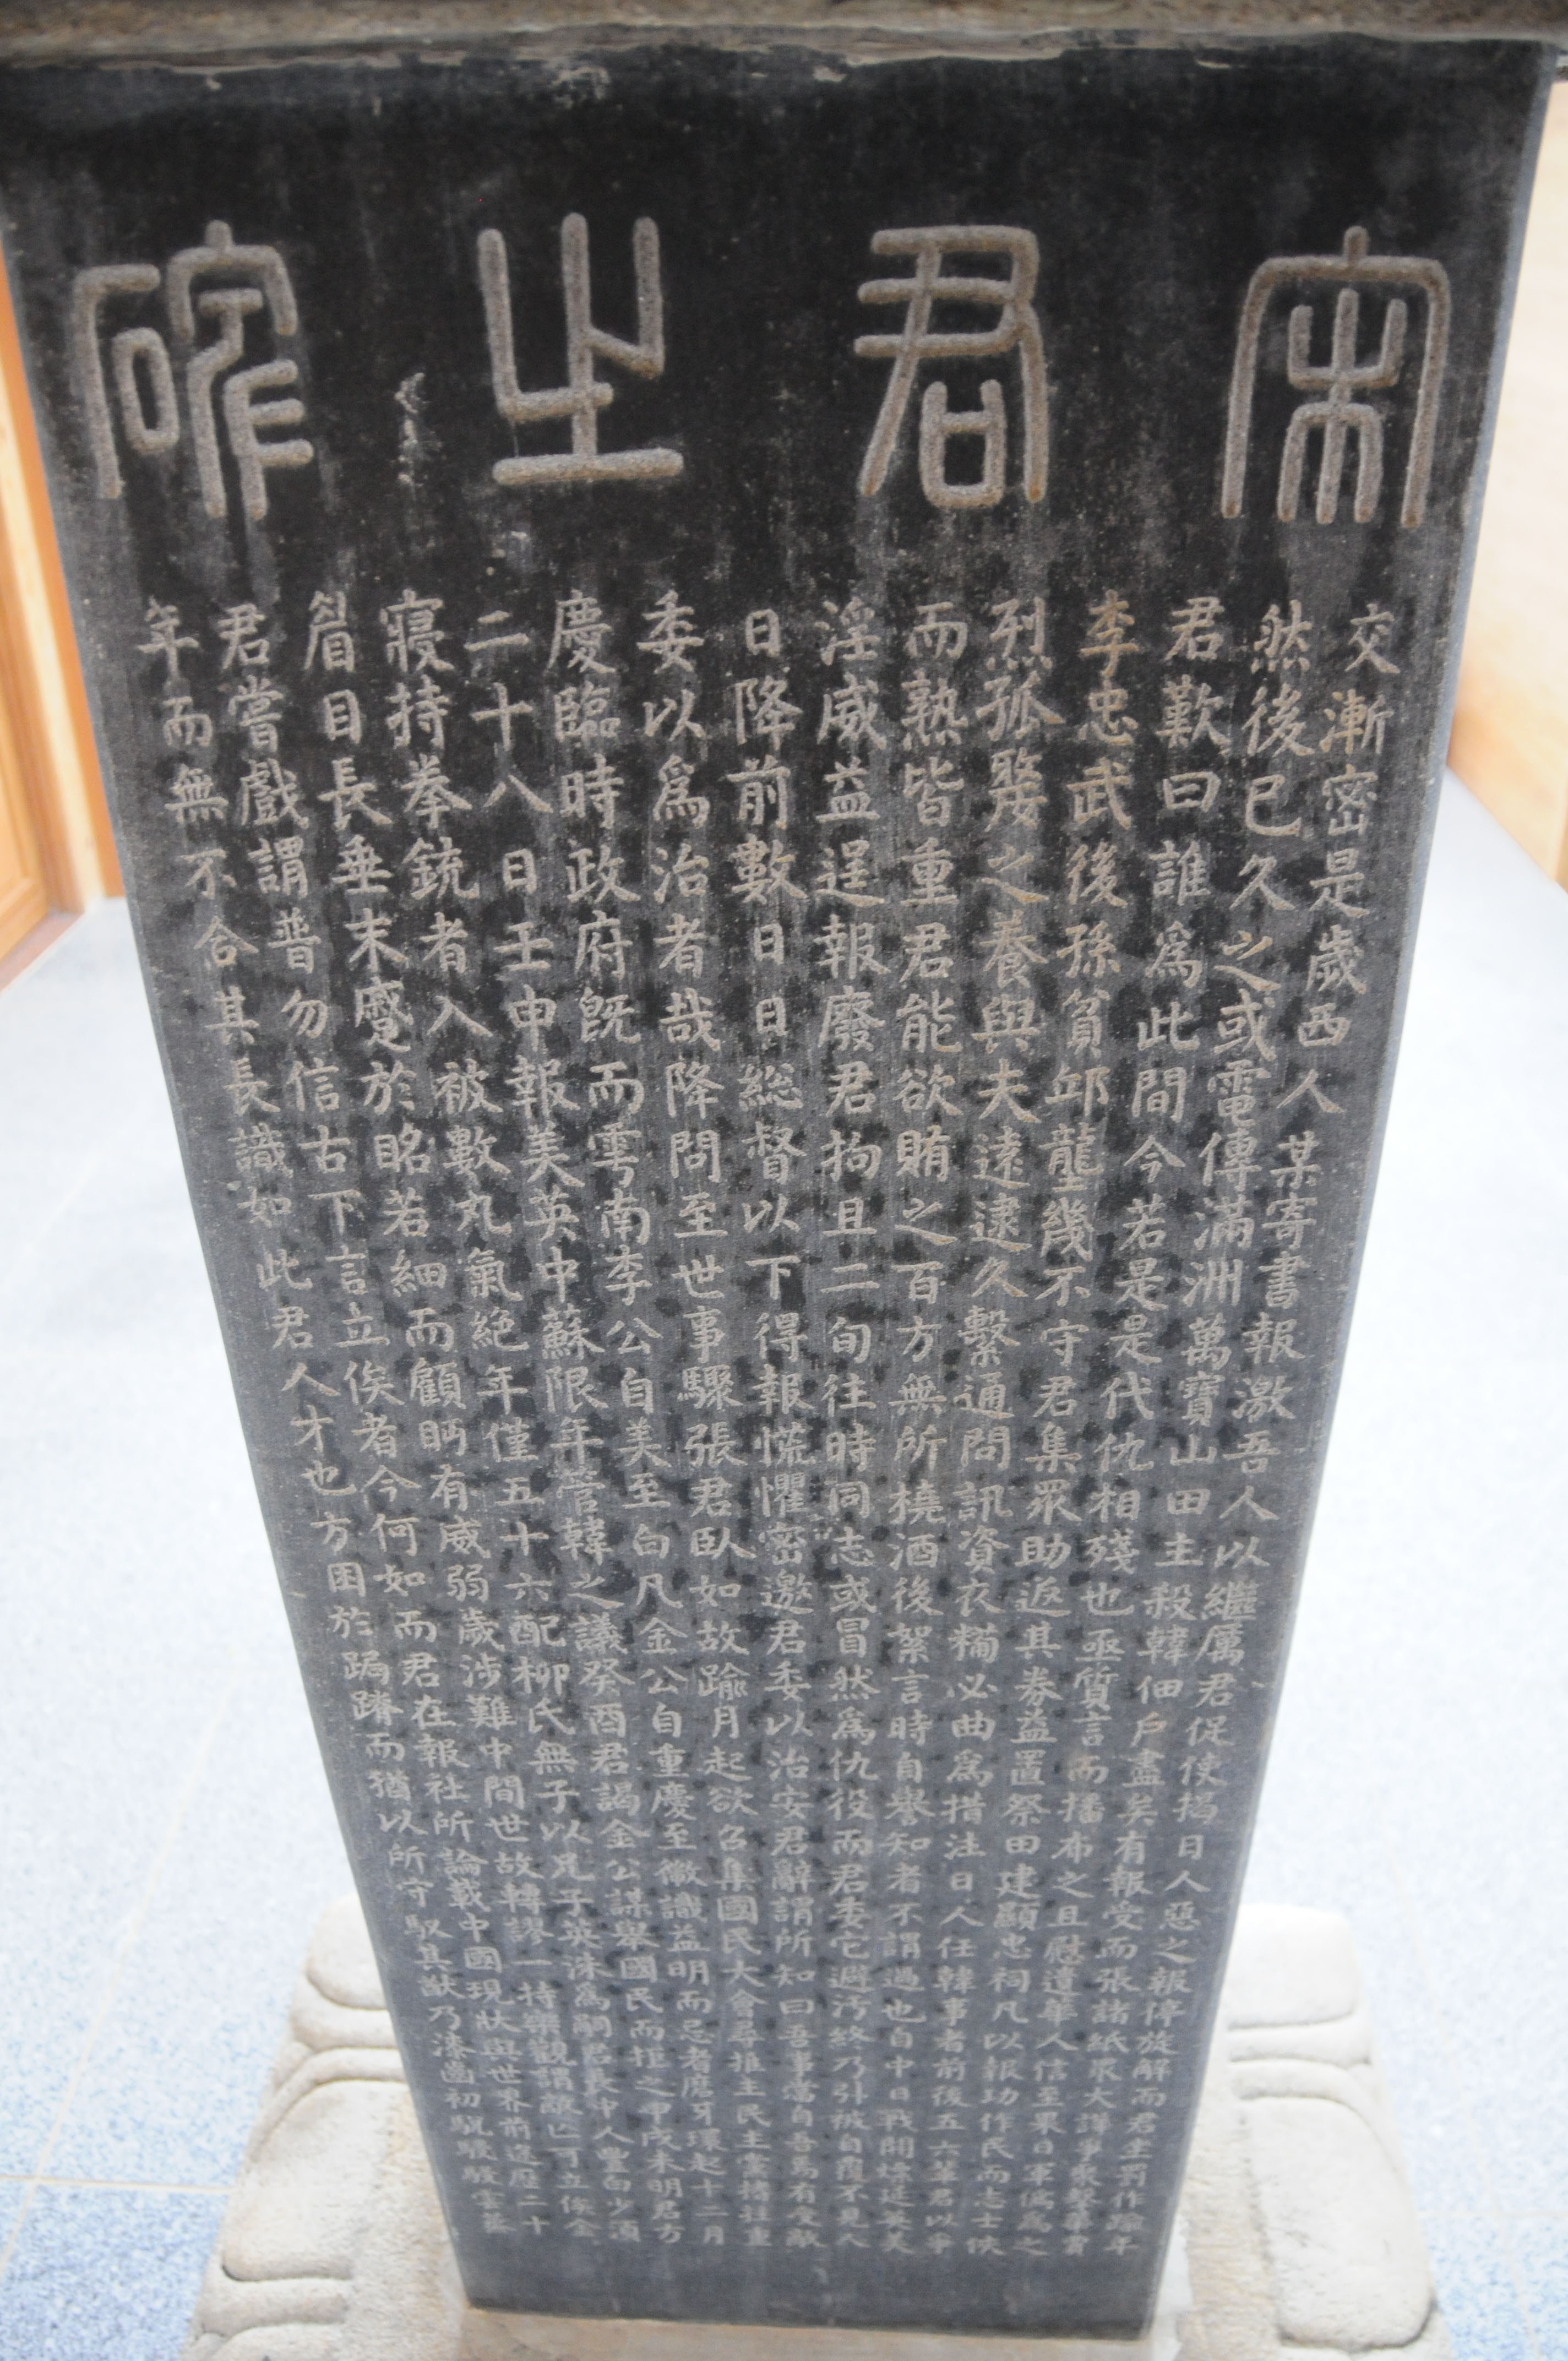 宋君之碑
交漸密是歲西人某寄書報激吾人以繼厲君促使揭日人惡之報停旋解而君坐罰作踰年
然後已久之或電傳滿洲萬寶山田主殺韓佃戶盡矣有報受而張諸紙衆大譁爭
君歎曰誰爲此間今若是是代仇相殘也亟質言而播布之且慰遺華人信至果日軍僞爲之
李忠武後孫貧邱壟幾不守君集眾助返其券益置祭田建顯忠祠凡以報功作民而志士
烈孤嫠之養與夫遠逮久繫通問訊資衣糒必曲爲措注日人任韓事者前後五六輩君以爭
而熟皆重君能欲賄之百方無所橈酒後絮言時自譽知者不謂過也自中日戰開
淫威益逞報廢君拘且二旬往時同志或冒然爲仇役而君委宅避汚終乃引被自覆不見人
日降前數日日総督以下得報慌懼密邀君委以治安君辭謂所知曰吾事當自吾爲有受敵
委以爲治者哉降問至世事驟張君臥如故踰月起欲召集國民大會尋推主民主黨
慶臨時政府旣而雩南李公自美至白凡金公自重慶至徽識益明而忌者磨牙環起十二月
二十八日壬申報美英中蘇限年管韓之議癸酉君謁金公謀擧國民而拒之甲戌未明君方
寢持拳銃者入被數丸氣絕年僅五十六配柳氏無子以兄子英洙爲嗣君長中人豐白少須
眉目長垂末蹙於眧若細而顧眄有威弱歲涉難中間世故轉謬一持樂觀謂敵亡可立俟余
君嘗戲謂普勿信古下言立俟者今何如而君在報社所論載中國現狀與世界前途歷二十
年而無不合其長識如此君人才也方困於跼蹐而猶以所守馭其猷乃漆齒初